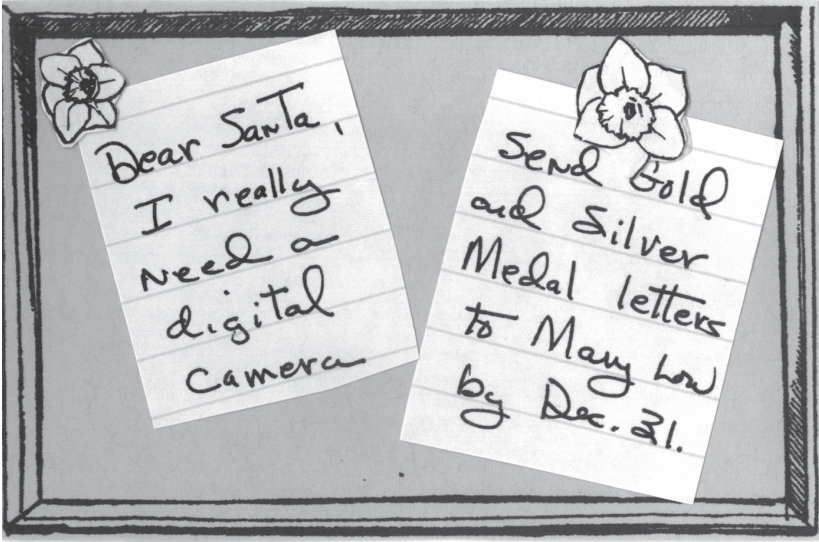 Dear Santa,
I really
need a
digital
camera
Send Gold
and Silver
Medal letters
to Mary Lou
by Dec. 31.